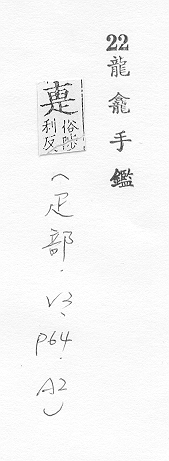 22龍龕手鑑
俗陟
利反
(疋部.V3、P64.A2)